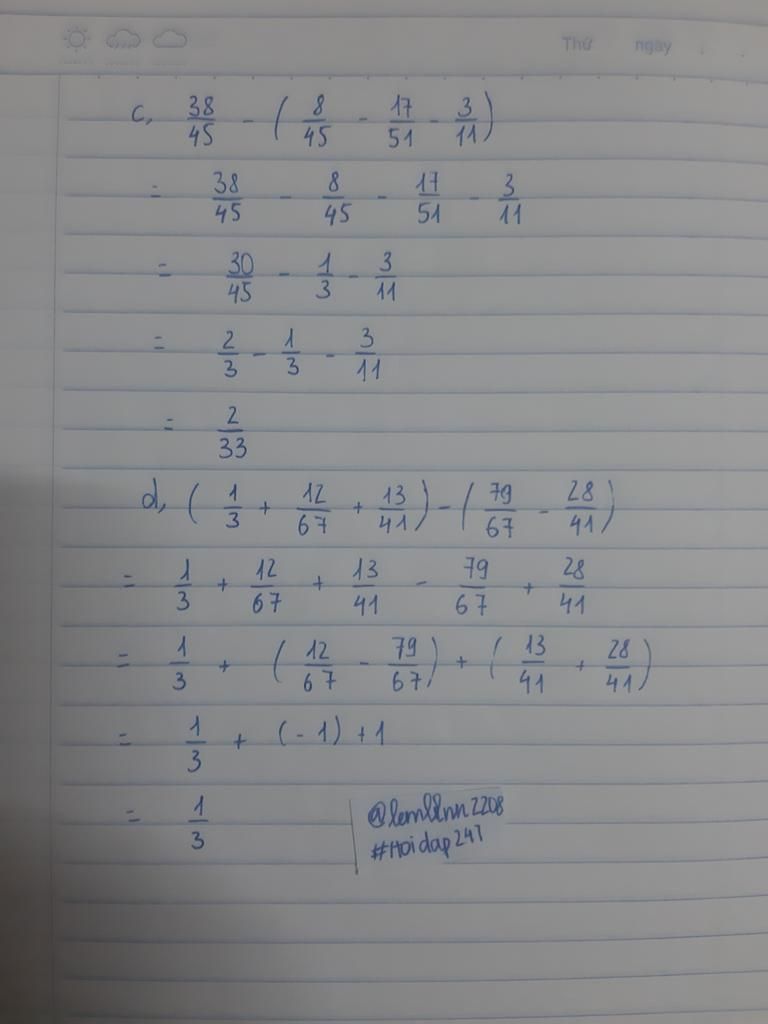 Thứ ngày
c, 38/45 - ( 8/45 - 17/51 - 3/11 )
= 38/45 - 8/45 - 17/51 - 3/11
= 30/45 - 1/3 - 3/11
= 2/3 - 1/3 - 3/11
= 2/33
d, ( 1/3 + 12/67 + 13/41 ) - ( 79/67 - 28/41 )
= 1/3 + 12/67 + 13/41 - 79/67 + 28/41
= 1/3 + ( 12/67 - 79/67 ) + ( 13/41 + 28/41 )
= 1/3 + (-1) + 1
= 1/3
#Hoidap247